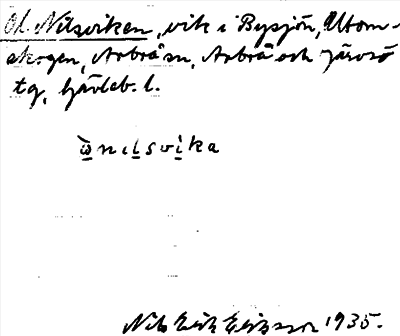 Ol. Nilsviken, vik i Bysjön, Utom-
skogen, Arbrå sn, Arbrå och Järvsö
tg, Gävleb. l.
ὼnilsvika
Nils Erik Eriksson 1935.